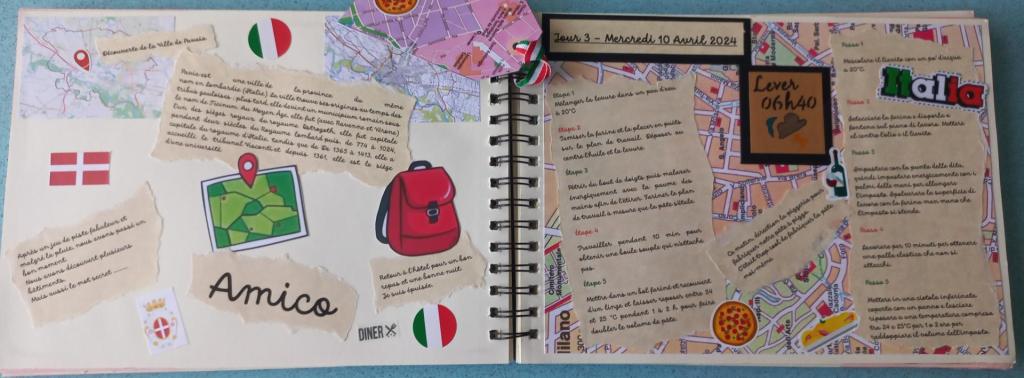 Découverte de la Ville de Pavie
Pavie est une ville de la province du même
nom en Lombardie (Italie). La ville trouve ses origines au temps des
tribus gauloises ; plus tard elle devient un municipium romain sous
le nom de Ticinum. Du Moyen Âge, elle fut (avec Ravenne et Vérone)
l'un des sièges royaux du royaume Ostrogoth, elle fut capitale
pendant deux siècles du Royaume lombard puis, de 774 à 1024,
capitale du royaume d'Italie, tandis que de 1365 à 1413, elle a
accueilli le tribunal Visconti et depuis 1361, elle est le siège
d'une université.
Après un jeu de piste fabuleux et
malgré la pluie, nous avons passé un
bon moment.
Nous avons découvert plusieurs
bâtiments.
Mais aussi le mot secret
Amico
Retour à l'hôtel pour un bon
repas et une bonne nuit.
Je suis épuisée.
DINER
Jour 3 - Mercredi 10 Avril 2024
Lever
06h40
Etape 1
Mélanger la levure dans un peu d'eau
à 20°C
Etape 2
Tamiser la farine et la placer en puits
sur le plan de travail. Déposer au
centre l'huile et la levure.
Etape 3
Pétrir du bout de doigts puis malaxer
énergiquement avec la paume des
mains afin de l'étirer. Fariner le plan
de travail à mesure que la pâte s'étale.
Etape 4
Travailler pendant 10 min pour
obtenir une boule souple qui n'attache
pas.
Etape 5
Mettre dans un bol fariné et recouvert
d'un linge et laisser reposer entre 24
et 25 °C pendant 1 à 2 h pour faire
doubler le volume de pâte.
Ce matin, direction la pizzeria pour
fabriquer notre pâte à pizza.
C'était trop cool de fabriquer la pâte
moi-même
Italia
Passo 1
Mescolare il lievito con un po' d'acqua
a 20°C.
Passo 2
Setacciare la farina e disporla a
fontana sul piano di lavoro. Mettere
al centro l'olio e il lievito.
Passo 3
Impastare con la punta delle dita,
quindi impastare energicamente con i
palmi delle mani per allungare
l'impasto. Spolverare la superficie di
lavoro con la farina man mano che
l'impasto si stende.
Passo 4
Lavorare per 10 minuti per ottenere
una palla elastica che non si
attacchi.
Passo 5
Mettere in una ciotola infarinata
coperta con un panno e lasciare
riposare a una temperatura compresa
tra 24 e 25°C per 1 o 2 ore per
raddoppiare il volume dell'impasto.